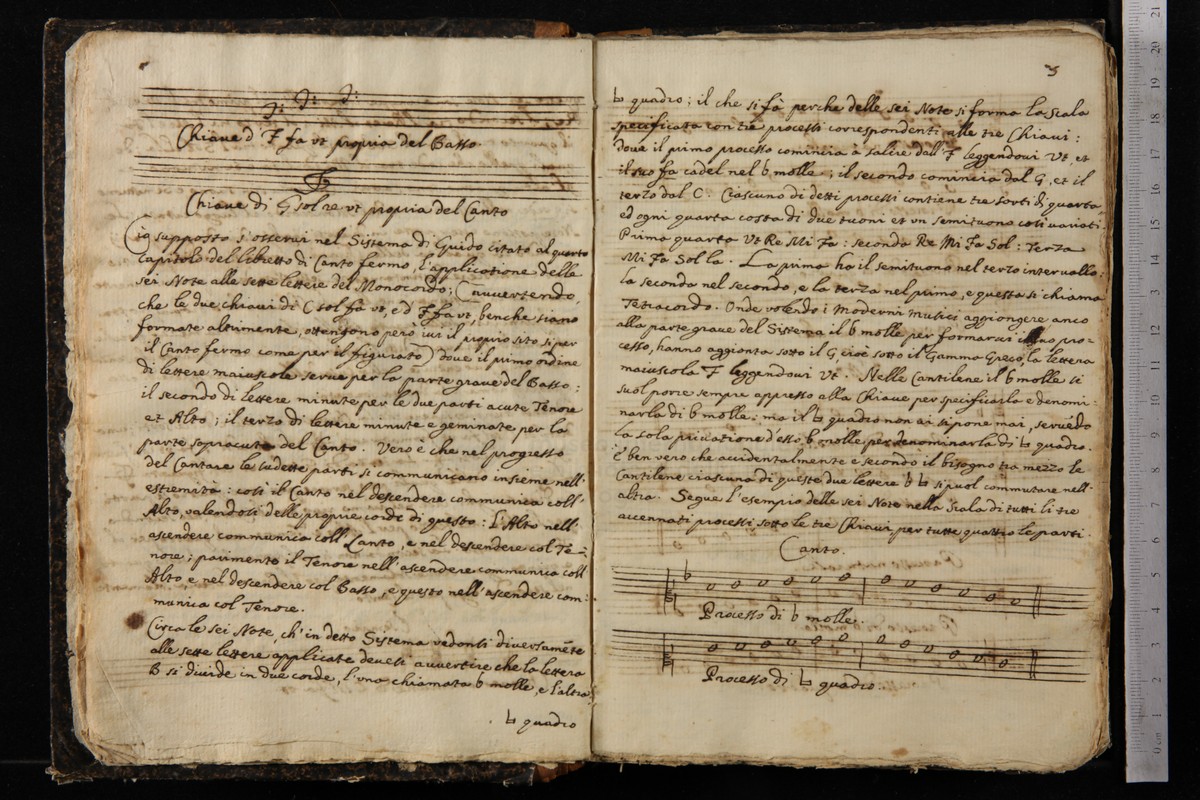 Chiave d'F fa ut propria del Basso
Chiave di G sol re ut propria del Canto
Ciò supposto s'osservi nel Sistema di Guido citato al quarto
Capitolo del libretto di Canto fermo l'applicatione delle
sei Note alle sette lettere del Monocordo; (avvertendo,
che le due chiavi di C sol fa ut, e d'F fa ut, benche siano
formate altrimente, ottengono però ivi il proprio sito sì per
il Canto fermo come per il figurato) dove il primo ordine
di lettere maiuscole serve per la parte grave del Basso:
il secondo di lettere minute per le due parti acute Tenore
et Alto; il terzo di lettere minute e geminate per la
parte sopracuta del Canto. Vero è che nel progresso
del Cantare le sudette parti si communicano insieme nell'
estremità: così il Canto nel descendere communica coll'
Alto, valendosi delle proprie corde di questo: L'Alto nell'
ascendere communica coll' Canto, e nel descendere col Te-
nore; parimente il Tenore nell'ascendere communica coll'
Alto e nel descendere col Basso, e questo nell'ascendere com-
munica col Tenore.
Circa le sei Note, ch'in detto Sistema vedonsi diversamēte
alle sette lettere applicate devesi avvertire che la lettera
B si divide in due corde, l'una chiamata b molle, e l'altra
♮ quadro
3
♮ quadro; il che si fà perche delle sei Note si forma la Scala
specificata con tre processi correspondenti alle tre Chiavi:
dove il primo processo comincia à salire dall'F leggendovi Ut, et
il suo fa cade nel b molle; il secondo comincia dal G, et il
terzo dal C. Ciascuno di detti processi contiene tre sorti di quarta
ed ogni quarta costa di due tuoni et un semituono così variati.
Prima quarta Ut Re Mi Fa: seconda Re Mi Fa Sol: Terza
Mi Fa Sol la. La prima ha il semituono nel terzo intervallo:
la seconda nel secondo, e la terza nel primo, e questa si chiama
Tetracordo. Onde volendo i Moderni Musici aggiongere anco
alla parte grave del Sistema il b molle per formarvi il suo pro-
cesso, hanno aggionta sotto il G, cioè sotto il Gamma Greco, la lettera
maiuscola F leggendovi Ut. Nelle Cantilene il b molle si
suol porre sempre appresso alla Chiave per specificarla e denomi-
narla di b molle: ma il ♮ quadro non vi si pone mai, servēdo
la sola privatione d'esso b molle per denominarla di ♮ quadro.
È ben vero che accidentalmente e secondo il bisogno tra mezzo le
Cantilene ciascuna di queste due lettere b ♮ si puol commutare nell'
altra. Segue l'esempio delle sei Note nella Scala di tutti li tre
accennati processi sotto le tre Chiavi per tutte quattro le parti.
Canto.
Processo di b molle.
Processo di ♮ quadro.